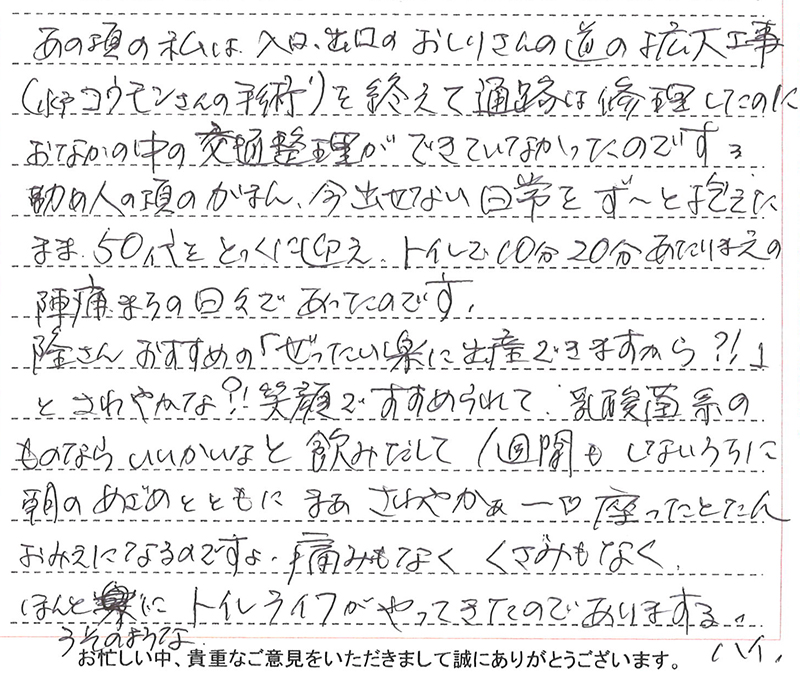 あの頃の私は、入口、出口のおしりさんの道の拡大工事
(水戸コウモンさんの手術)を終えて通路は修理したのに
おなかの中の交通整理ができていなかったのですョ
勤め人の頃のがまん、今出せない日常をず〜と抱えた
まま、50代をとっくに迎え、トイレで10分20分あたりまえの
陣痛まちの日々であったのです。
隆さんおすすめの「ぜったい楽に出産できますから?!!」
とさわやかな?!!笑顔ですすめられて、乳酸菌系の
ものならいいかいなと飲みだして1週間もしないうちに
朝のめざめとともにまあさわやかぁ一口座ったとたん
おみえになるのですよ。痛みもなくくさみもなく、
ほんとに
うそのような
トイレライフがやってきたのでありまする。
ハイ。
お忙しい中、貴重なご意見をいただきまして誠にありがとうございます。